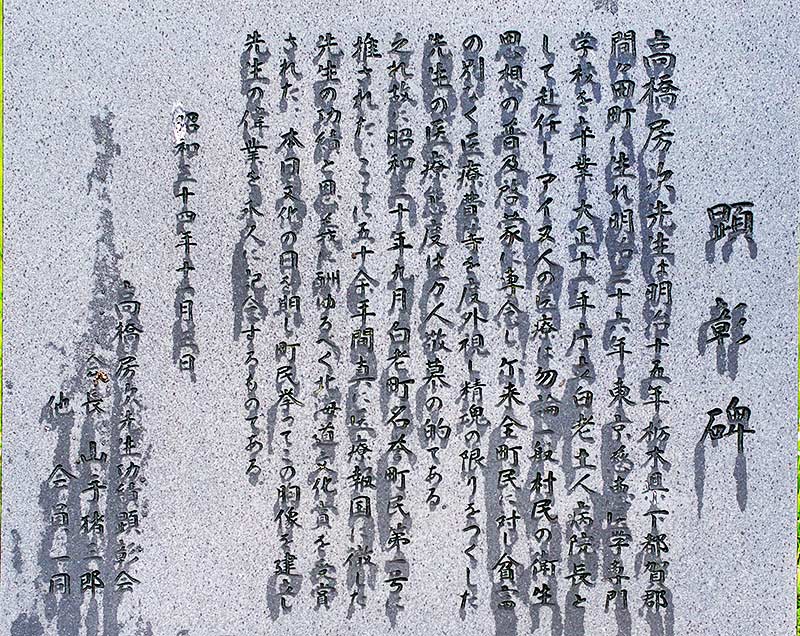 顕彰碑
高橋房次先生は明治十五年栃木県下都賀郡
間々田町に生れ明治三十六年東京慈恵医学専門
学校を卒業大正十一年庁立白老土人病院長と
して赴任しアイヌ人の医療は勿論一般村民の衛生
思想の普及啓蒙に専念し尓来全町民に対し貧富
の別なく医療費等を度外視し精魂の限りをつくした
先生の医療態度は万人敬慕の的である
之れ故に昭和三十年九月白老町名誉町民第一号に
推された、ここに五十余年間真に医療報国に徹した
先生の功績と恩義に酬ゆるべく北海道文化賞を受賞
された、本日文化の日を期し町民挙ってこの胸像を建立し
先生の偉業を永久に記念するものである
昭和三十四年十一月三日
高橋房次先生功績顕彰会
会長 山手猪三郎
他 会員一同